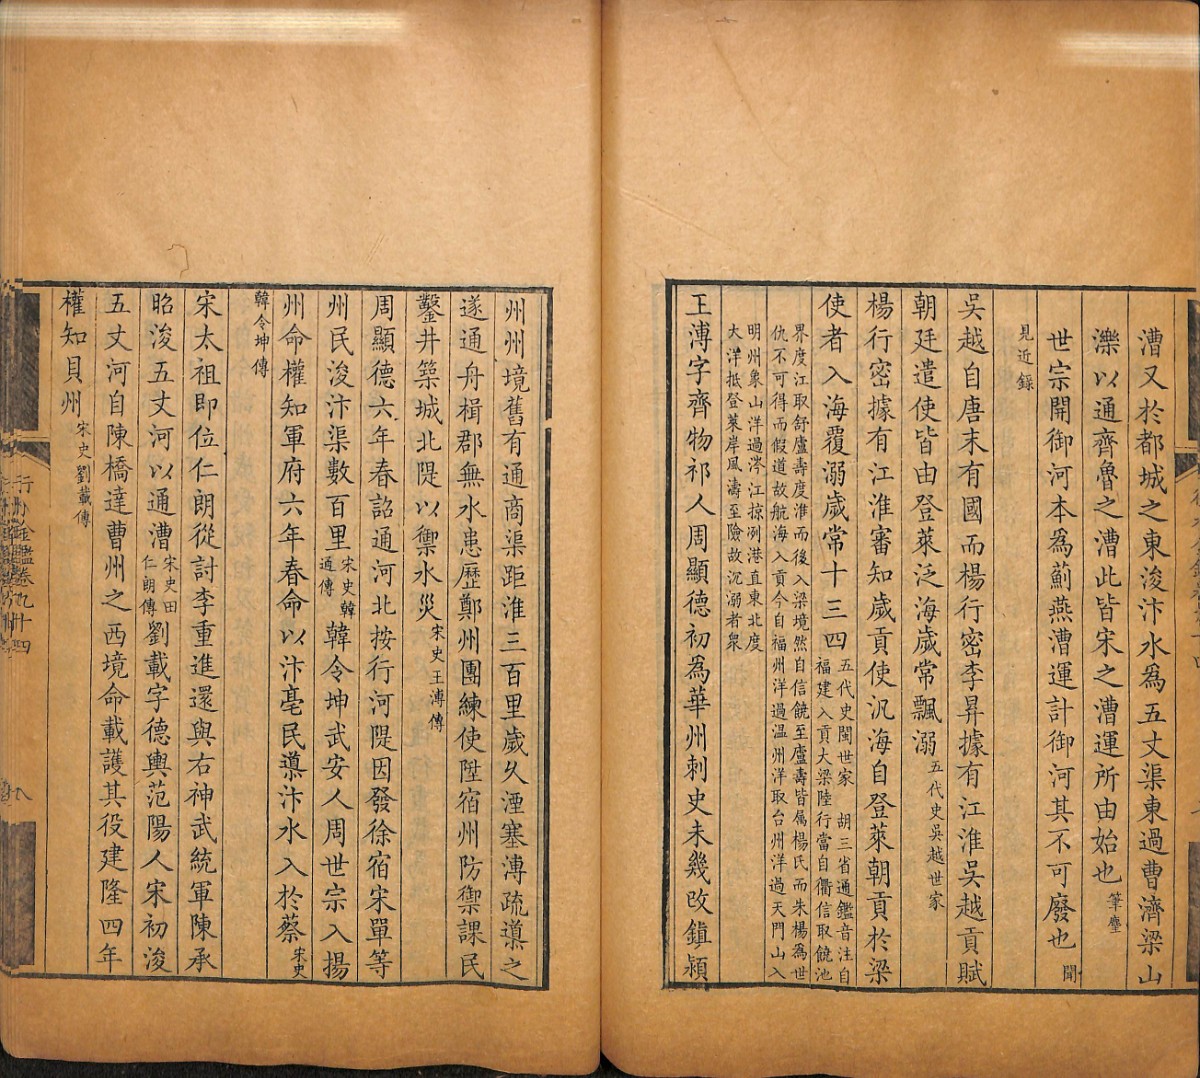 漕又於都城之東浚汴水為五丈渠東過曹濟梁山
濼以通齊魯之漕此皆宋之漕運所由始也筆麈
世宗開御河本為薊燕漕運計御河其不可廢也聞
見近錄
吳越自唐末有國而楊行密李昇據有江淮吳越貢賦
朝廷遣使皆由登萊泛海歲常飄溺五代史吳越世家
楊行密據有江淮審知歲貢使汎海自登萊朝貢於梁
使者入海覆溺歲常十三四五代史閩世家 胡三省通鑑音注自
福建入貢大梁陸行當自衢信取饒池
界度江取舒廬壽度淮而後入梁境然自信饒至廬壽皆屬楊氏而朱楊為世
仇不可得而假道故航海入貢今自福州洋過温州洋取台州洋過天門山入
明州象山洋過涔江掠冽港直東北度
大洋抵登萊岸風濤至險故沉溺者衆
王溥字齊物祁人周顯德初為華州刺史未幾改鎮潁
州州境舊有通商渠距淮三百里歲久湮塞溥疏導之
遂通舟楫郡無水患歷鄭州團練使陞宿州防禦課民
鑿井築城北隄以禦水災宋史王溥傳
周顯德六年春詔通河北按行河隄因發徐宿宋單等
州民浚汴渠數百里宋史韓
通傳韓令坤武安人周世宗入揚
州命權知軍府六年春命以汴亳民導汴水入於蔡宋史
韓令坤傳
宋太祖即位仁朗從討李重進還與右神武統軍陳承
昭浚五丈河以通漕宋史田
仁朗傳劉載字德輿范陽人宋初浚
五丈河自陳橋達曹州之西境命載護其役建隆四年
權知貝州宋史劉載傳
行水金鑑卷九十四
八